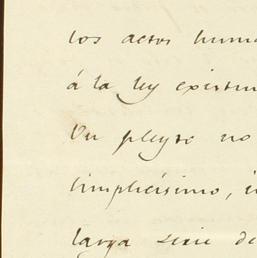 los actos huma
á la ley existen
Un pleyto no
simplicísimo, i
larga serie de